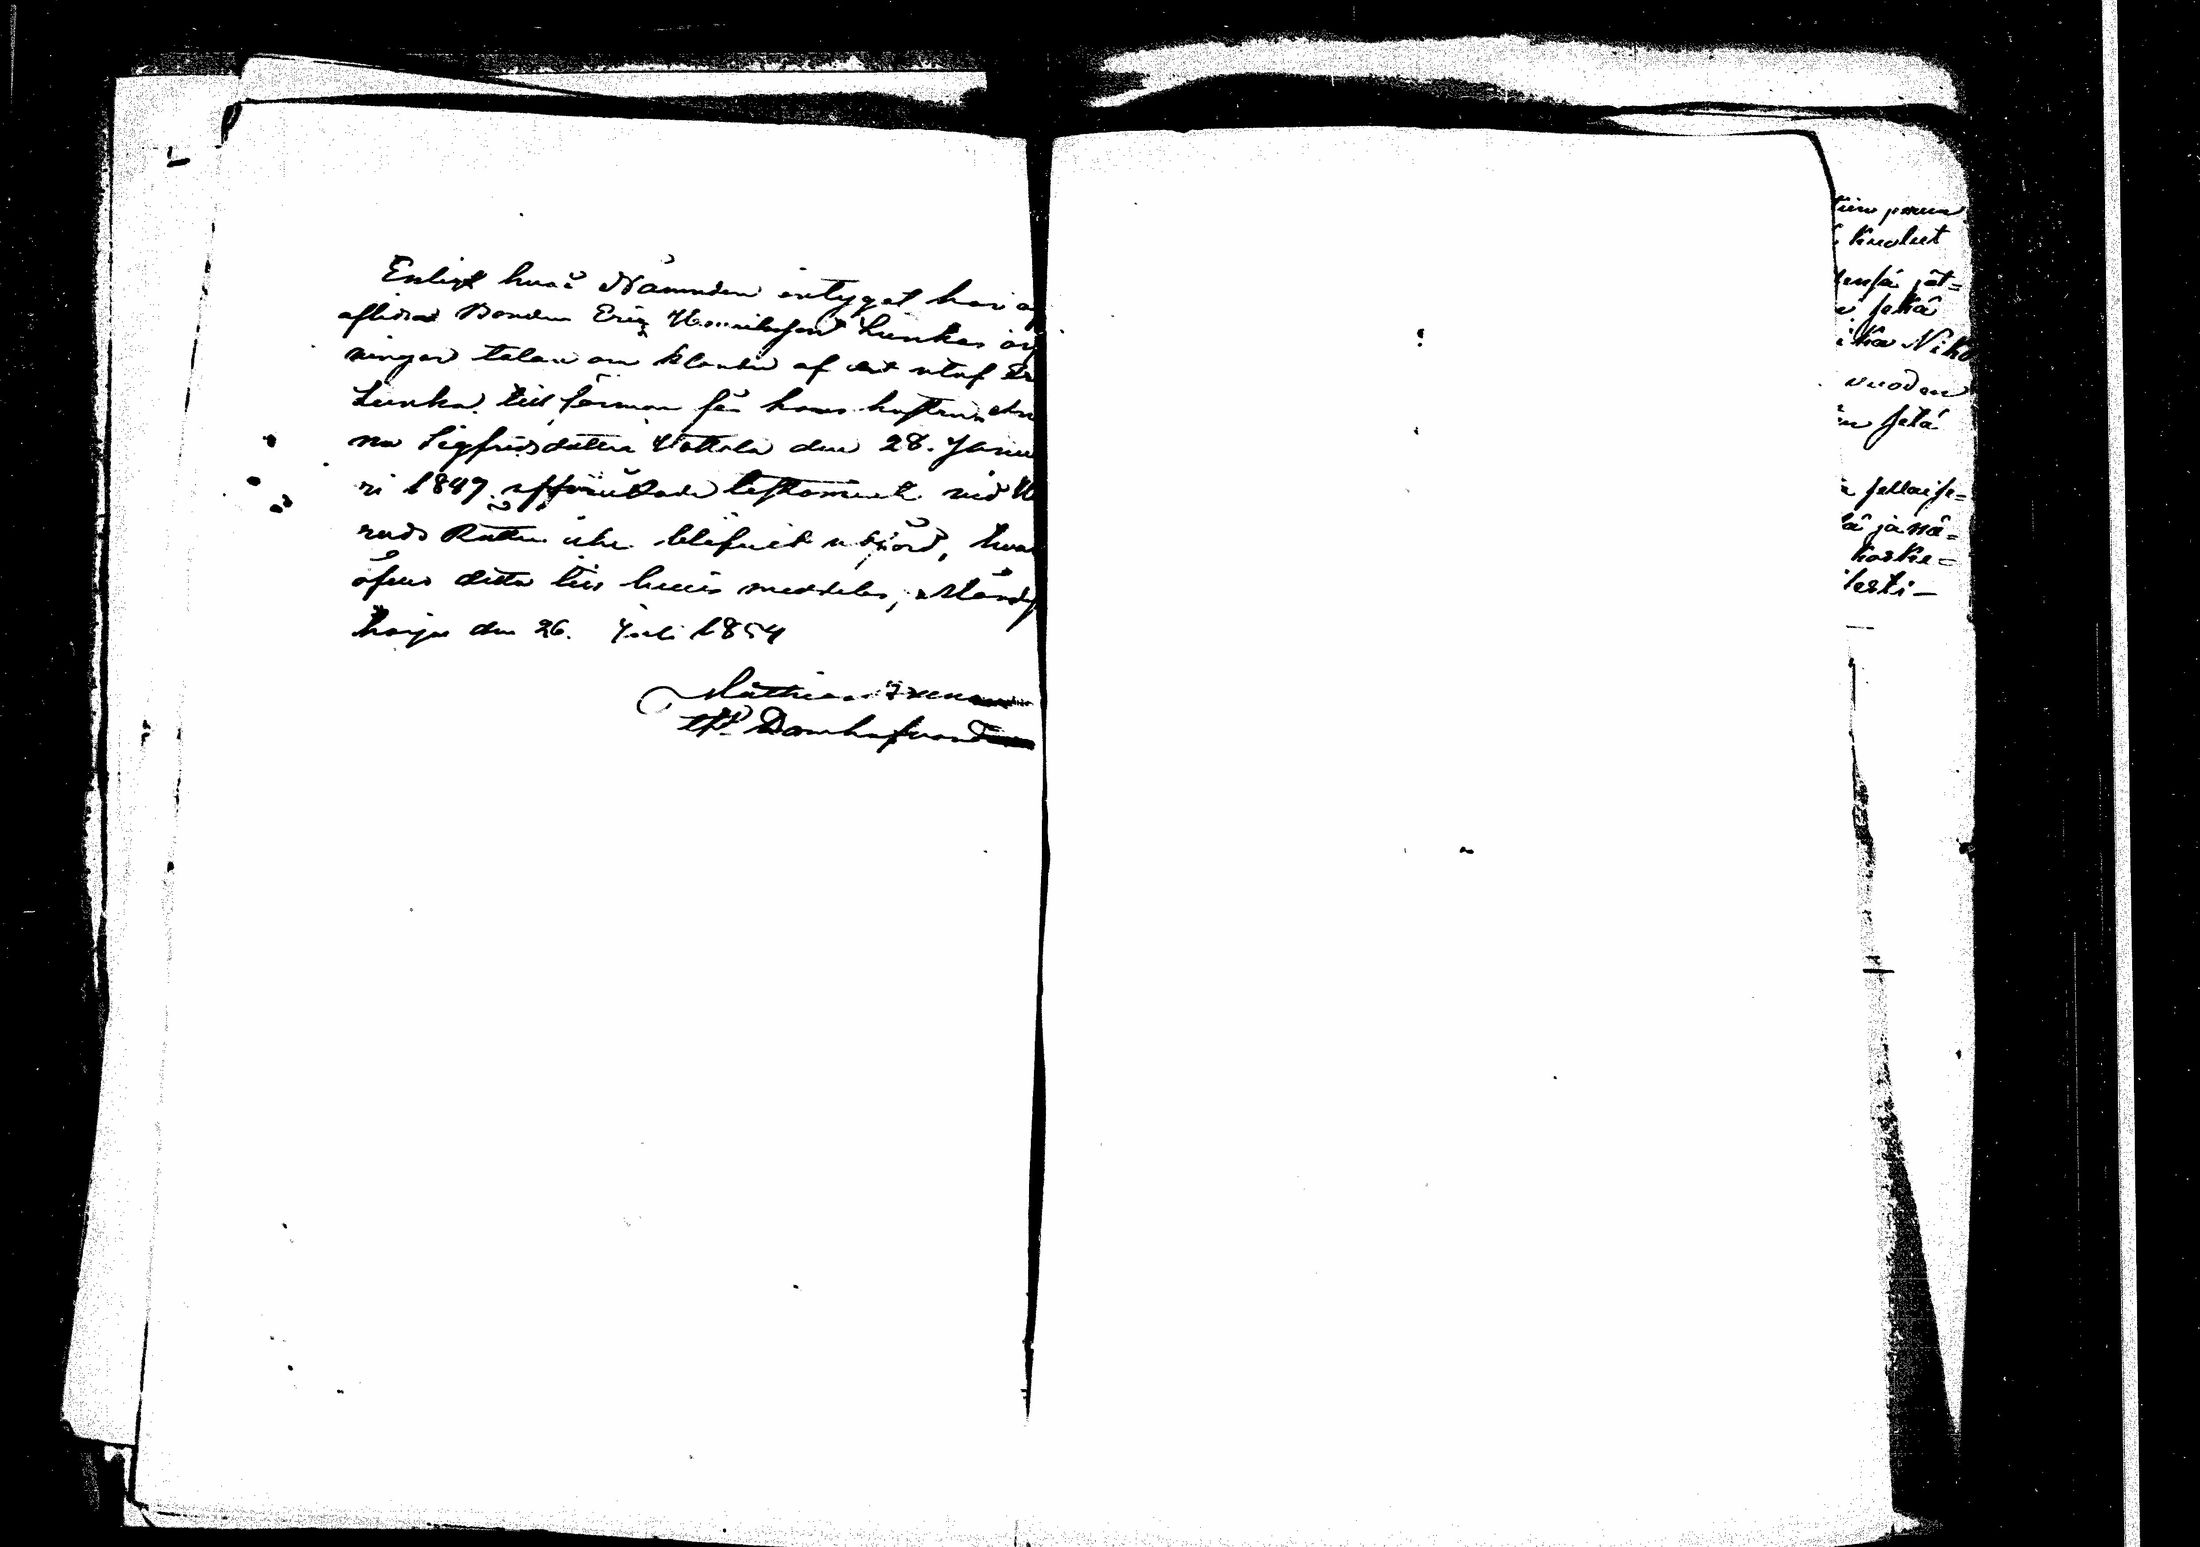 Enligt hvad Nämnden intygat har af
aflidne Bonden Eric Henriksson Lunkas arf
ningar talan om klander af det utaf Er
Lunka till förmon för hans hustru An
na Sigfridsdotter Wattala den 28. Janua
ri 1847 upprättade testamente vid H
rads Rätten icke blifvit utförd, hvar
öfver detta till bevis meddelas,
harju den 26. Juli 1854
Mathias
Domhafvande
tiin
kuolut
jät=
sekä
ika Niko
vuoden
sitä
sellaise=
lä ja nä=
koske=
testi-